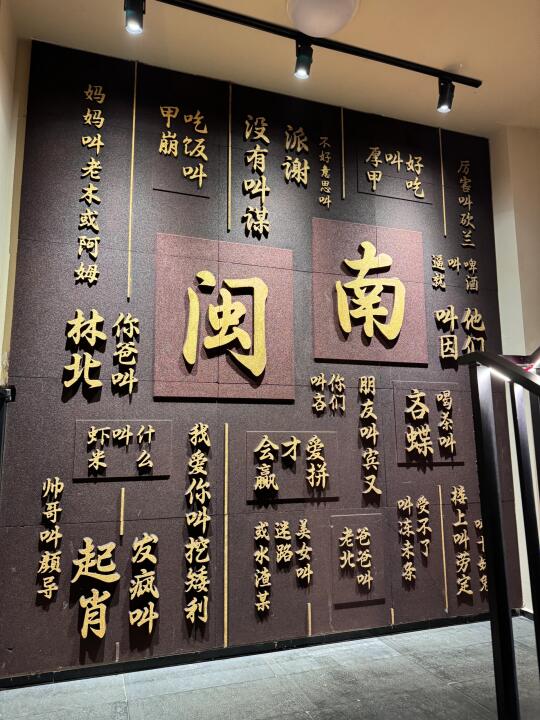 闽南
厉害叫砍兰
啤酒
叫
逼就
他们
叫因
好吃
叫
厚甲
不好意思叫
派谢
没有叫谋
吃饭叫
甲崩
妈妈叫老木或阿姆
你爸叫
林北
喝茶叫
吝蝶
朋友叫宾又
你们
叫吝
爱拼
才
会赢
我爱你叫挖矮利
什么
叫
虾米
楼上叫劳定
受不了
叫冻未条
爸爸叫
老北
美女叫
迷路
或水渣某
发疯叫
起肖
帅哥叫